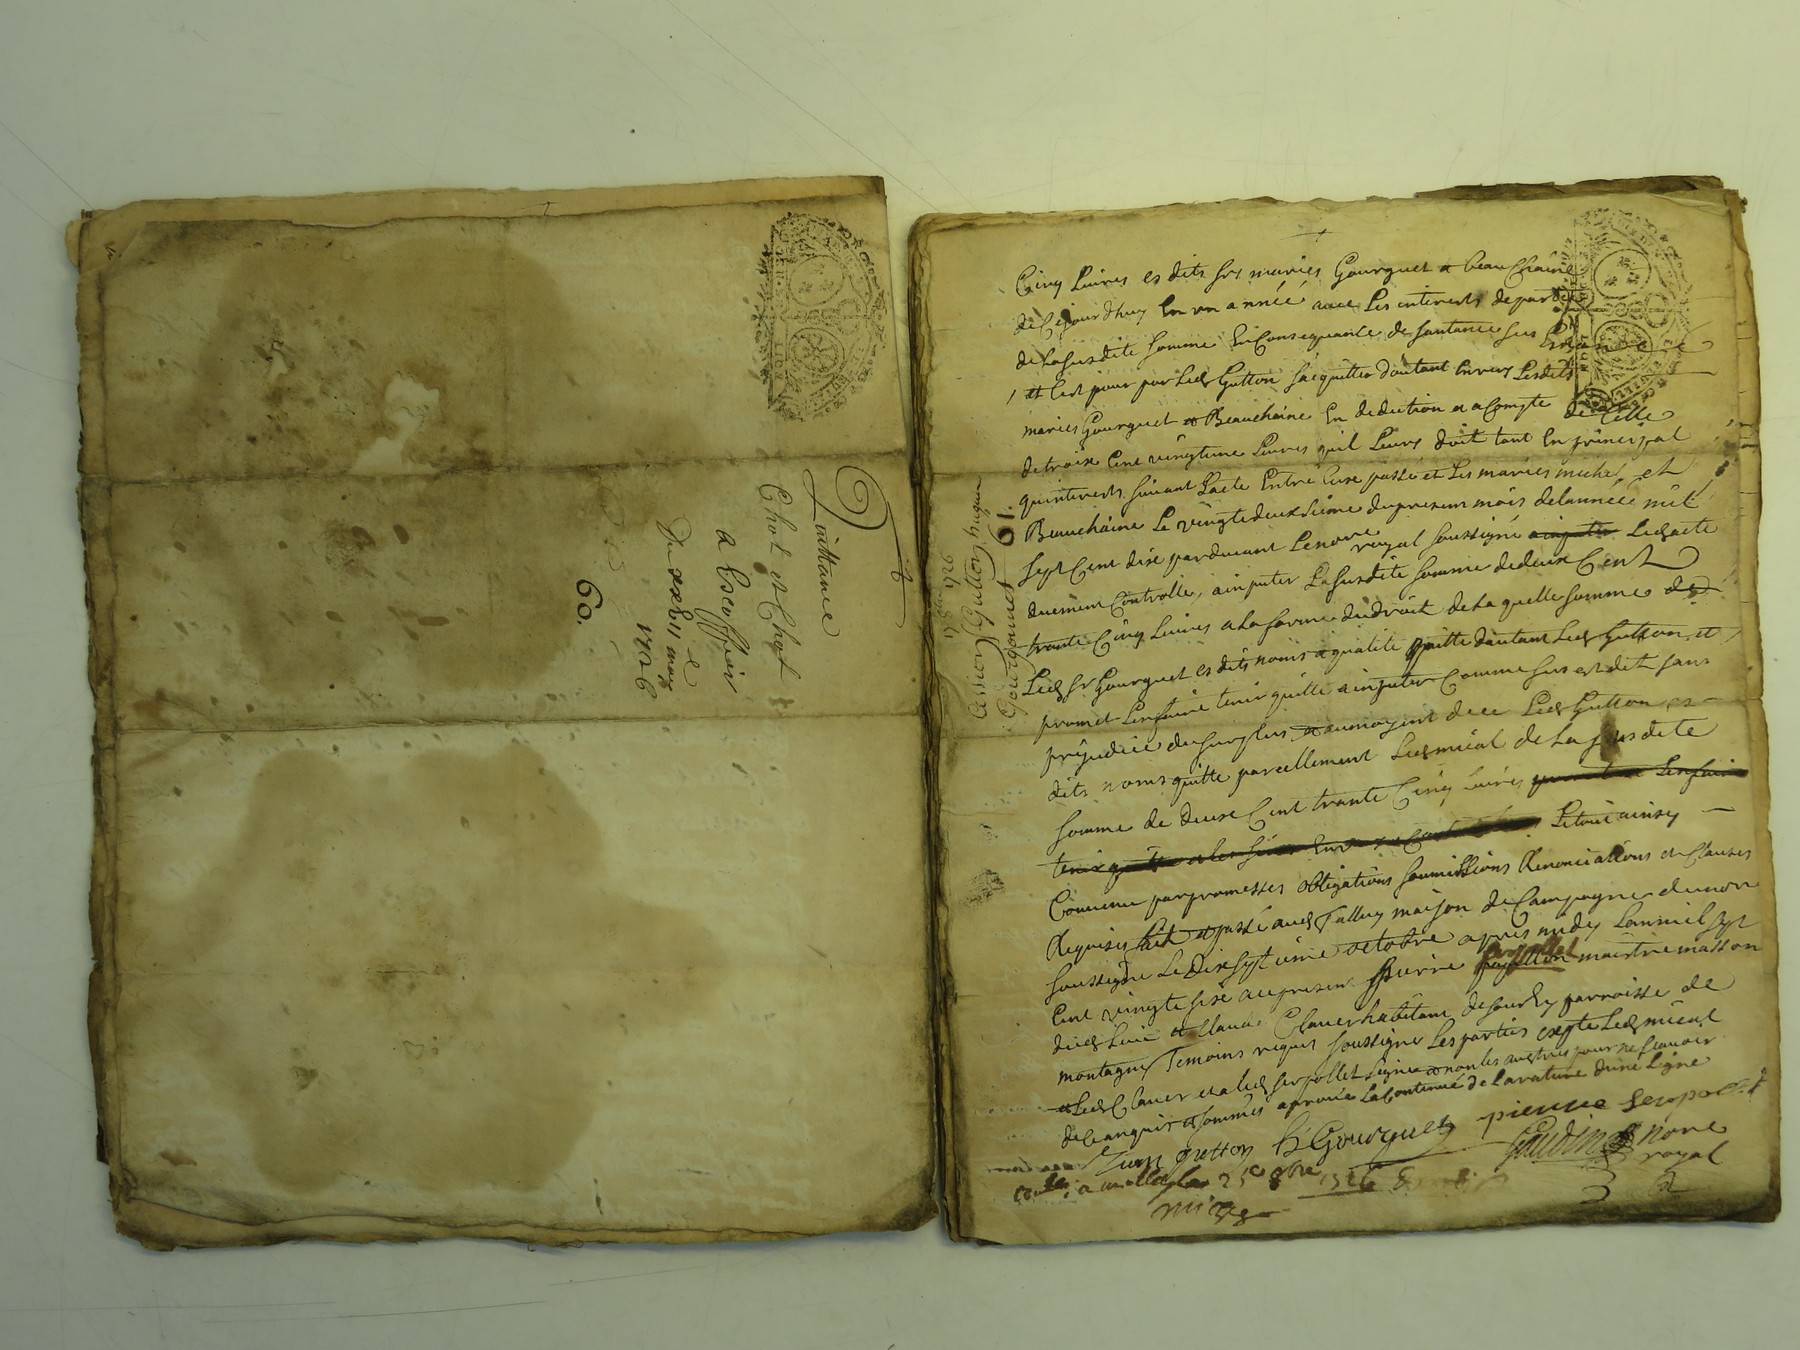 Quittance
Chol et Chol
a Escoffier
Du xxe 11 may
1726
60.
61.
Cession Gutton
Gourgounet
Cinq Livres es dits srs mariés Gourguet et beauchaine
de Cejourdhuy En un année avec Les interests
de Lasusdite somme En Consequance de
et C'est pour par Led Gutton sacquitter dautant Envers Lesdits
mariés Gourguet et Beauchaine En deduction et acompte de Celle
de troix Cent vingtune Livres quil Leurs doit tant En principal
quinterests suivant Lacte Entre Eux passé et Les mariés michel et
Beauchaine Le vingtedeuxsieme dupresent mois delannée mil
sept Cent dix pardevant Lenore royal soussigné Ledacte
duement Controllé, ainputer Lasusdite somme dedeux Cent
trante Cinq Livres a La forme dudroit delaquelle somme
Led sr Gourguet esdits noms et qualité quitte dautant Led Gutton, et
promet Lenfaire tenir quitte ainputer Comme sus est dit sans
préjudice du surplus et aumoyent de ce Led Gutton es
dits noms quitte pareillement Led mieal de La susdite
somme de deux Cent trante Cinq Livres
Letout ainsy
Convenu par promesses obligations soumissions Renonciations et Clauses
Requises fait et passé aud Talluy maison de Campagne dunore
soussigné Le Dixseptieme octobre apres midy Lanmil sept
Cent vingtesix au present Pierre serpollet maistre masson
dud Lieu et Claude Claver habitant de sourzy parroisse de
montagny Temoins requis soussigné Les parties exepté Led mieal
et Led Claver et a led serpollet signé et non les austres pour ne scavoir
de Ce enquis et sommés aprouvé La Continué de Larature dune Ligne
Gutton Gourguet pierre serpollet
Gaudin nore
royal
a le 25e 8bre 1726